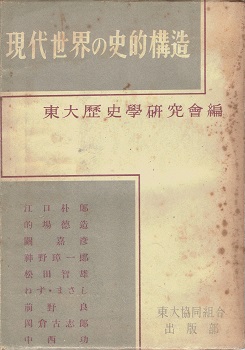 現代世界の史的構造
東大歷史學硏究會編
江口朴郎
的場德造
關嘉彥
神野璋一郎
松田智雄
ねず・まさし
前野良
岡倉古志郎
中西功
東大協同組合
出版部